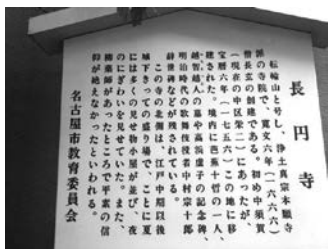 長円寺
転輪山と号し、浄土真宗本願寺
派の寺院で、寛文六年(一六六六)
僧長玄の創建である。初め中須賀
(現在の中区栄二)にあったが、
宝暦六年(一七五六)この地に移
建された。境内に芭蕉十哲の一人、
越智越人の墓や高浜虚子の記念碑、
明治時代の歌舞伎役者中村宗十郎
辞世碑などが残されている。
この寺の北側は、江戸中期以後
城下きっての盛り場で、ことに夏
には多くの見せ物小屋が並び、夜
のにぎわいを見せていた。また、
梅薬師があったところで平素の信
仰が絶えなかったといわれる。
名古屋市教育委員会